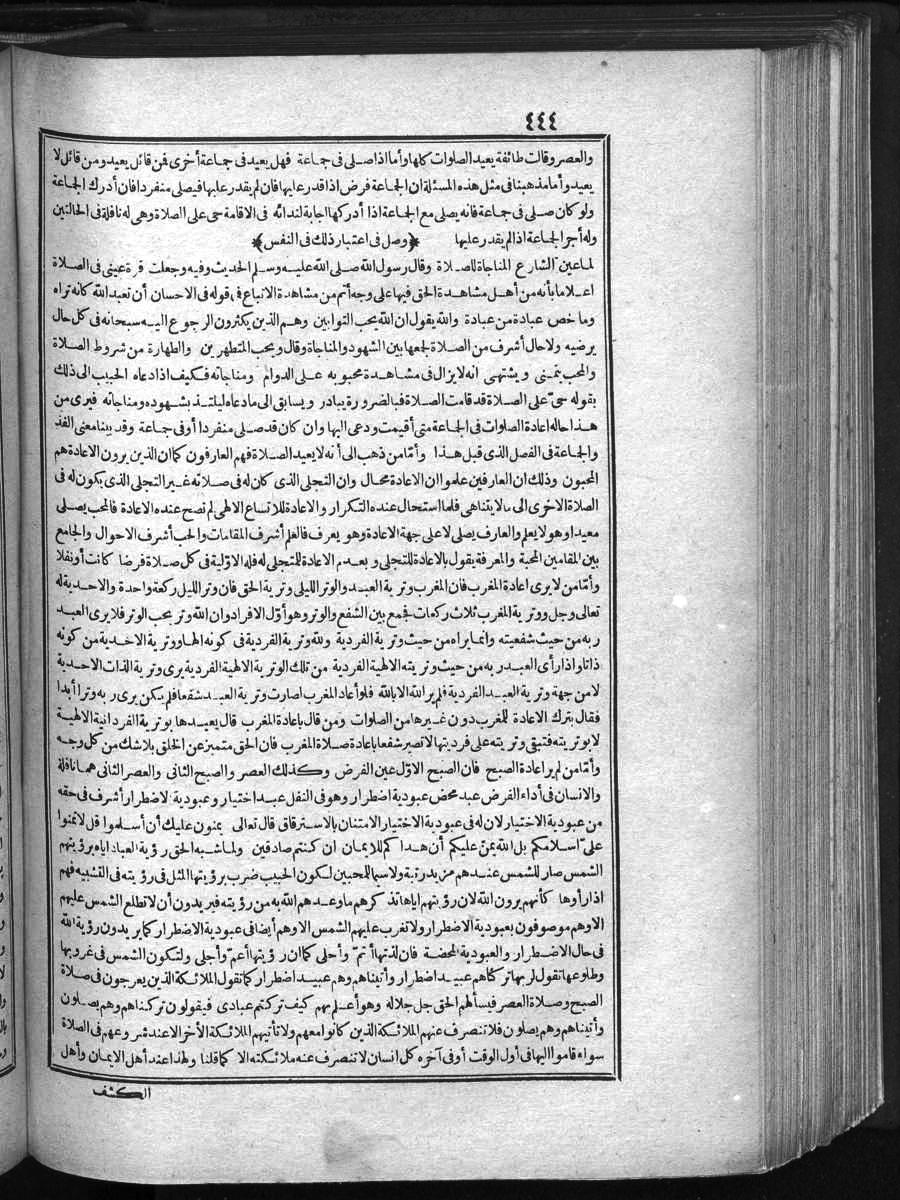 ٤٤٤
والعصر وقالت طائفة يعيد الصلوات كلها وأما اذا صلى فى جماعة فهل يعيد فى جماعة أخرى فمن قائل يعيد ومن قائل لا
يعيد وأما مذهبنا فى مثل هذه المسئلة ان الجماعة فرض اذا قدر عليها فان لم يقدر عليها فيصلى منفردا فان أدرك الجماعة
ولو كان صلى فى جماعة فانه يصلى مع الجماعة اذا أدركها اجابة لندائه فى الاقامة حى على الصلاة وهى له نافلة فى الحالتين
وله أجر الجماعة اذا لم يقدر عليها ﴿وصل فى اعتبار ذلك فى النفس﴾
لما عين الشارع المناجاة للصلاة وقال رسول الله صلى الله عليه وسلم الحديث وفيه وجعلت قرة عينى فى الصلاة
اعلاما بأنه من أهل مشاهدة الحق فيها على وجه أتم من مشاهدة الاتباع فى قوله فى الاحسان أن تعبد الله كانه تراه
وما خص عبادة من عبادة والله يقول ان الله يحب التوابين وهم الذين يكثرون الرجوع اليه سبحانه فى كل حال
يرضيه ولا حال أشرف من الصلاة لجمعها بين الشهود والمناجاة وقال ويحب المتطهرين والطهارة من شروط الصلاة
والمحب يتمنى ويشتهى انه لا يزال فى مشاهدة محبوبه على الدوام ومناجاته فكيف اذا دعاه الحبيب الى ذلك
بقوله حىّ على الصلاة قد قامت الصلاة فبالضرورة يبادر ويسابق الى ما دعاه ليلتذ بشهوده ومناجاته فيرى من
هذا حاله اعادة الصلوات فى الجماعة متى أقيمت ودعى اليها وان كان قد صلى منفردا أو فى جماعة وقد بينا معنى الفذ
والجماعة فى الفصل الذى قبل هذا وأمّا من ذهب الى أنه لا يعيد الصلاة فهم العارفون كما ان الذين يرون الاعادة هم
المحبون وذلك ان العارفين علموا ان الاعادة محال وان التجلى الذى كان له فى صلاته غير التجلى الذى يكون له فى
الصلاة الاخرى الى ما لا يتناهى فلما استحال عنده التكرار والاعادة للاتساع الالهى لم تصح عنده الاعادة فالمحب يصلى
معيدا وهو لا يعلم والعارف يصلى لا على جهة الاعادة وهو يعرف فالعلم أشرف المقامات والحب أشرف الاحوال والجامع
بين المقامين المحبة والمعرفة يقول بالاعادة للتجلى وبعدم الاعادة للمتجلى له فله الاوّلية فى كل صلاة فرضا كانت أو نفلا
وأمّا من لا يرى اعادة المغرب فان المغرب وترية العبد والوتر الليلى وترية الحق فان وتر الليل ركعة واحدة والاحدية له
تعالى وجل ووترية المغرب ثلاث ركعات فجمع بين الشفع والوتر وهو أوّل الافراد وان الله وتر يحب الوتر فلا يرى العبد
ربه من حيث شفعيته وانما يراه من حيث وترية الفردية ولله وترية الفردية فى كونه الها ووترية الاحدية من كونه
ذاتا واذا رأى العبد ربه من حيث وتريته الالهية الفردية من تلك الوترية الالهية الفردية يرى وترية الذات الاحدية
لا من جهة وترية العبد الفردية فلم ير الله الا بالله فلو أعاد المغرب لصارت وترية العبد شفعا فلم يكن يرى ربه وترا أبدا
فقال بترك الاعادة للمغرب دون غيرها من الصلوات ومن قال باعادة المغرب قال يعيدها بوترية الفردانية الالهية
لا بوتريته فتبقى وتريته على فرديتها لا تصير شفعا باعادة صلاة المغرب فان الحق متميز عن الخلق بلا شك من كل وجه
وأمّا من لم ير اعادة الصبح فان الصبح الاوّل عين الفرض وكذلك العصر والصبح الثانى والعصر الثانى هما نافلة
والانسان فى أداء الفرض عبد محض عبودية اضطرار وهو فى النفل عبد اختيار وعبودية الاضطرار أشرف فى حقه
من عبودية الاختيار لان له فى عبودية الاختيار الامتنان بالاسترقاق قال تعالى يمنون عليك أن أسلموا قل لا تمنوا
علىّ اسلامكم بل الله يمنّ عليكم أن هداكم للايمان ان كنتم صادقين ولما شبه الحق رؤية العباد اياه برؤيتهم
الشمس صار للشمس عندهم مزيد رتبة ولا سيما للمحبين لكون الحبيب ضرب برؤيتها المثل فى رؤيته فى التشبيه فهم
اذا رأوها كأنهم يرون الله لان رؤيتهم اياها تذكرهم ما وعدهم الله به من رؤيته فيريدون أن لا تطلع الشمس عليهم
الا وهم موصوفون بعبودية الاضطرار ولا تغرب عليهم الشمس الا وهم أيضا فى عبودية الاضطرار كما يريدون رؤية الله
فى حال الاضطرار والعبودية المحضة فان لذتها أتمّ وأحلى كما ان رؤيتها أعمّ وأجلى ولتكون الشمس فى غروبها
وطلوعها تقول لربها تركناهم عبيد اضطرار وأتيناهم وهم عبيد اضطرار كما تقول الملائكة الذين يعرجون فى صلاة
الصبح وصلاة العصر فيسألهم الحق جل جلاله وهو أعلم بهم كيف تركتم عبادى فيقولون تركناهم وهم يصلون
وأتيناهم وهم يصلون فلا تنصرف عنهم الملائكة الذين كانوا معهم ولا تأتيهم الملائكة الأخر الا عند شروعهم فى الصلاة
سواء قاموا اليها فى أول الوقت أو فى آخره كل انسان لا تنصرف عنه ملائكته الا كما قلنا ولهذا عند أهل الايمان وأهل
الكشف